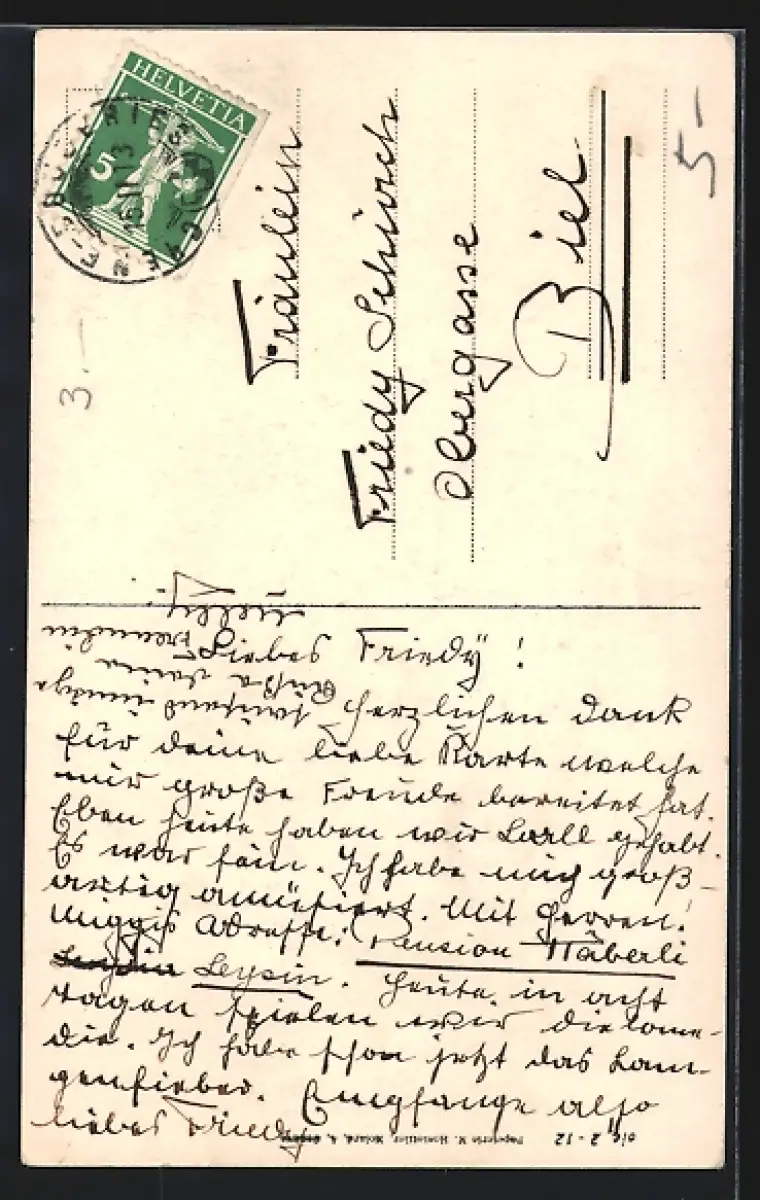 HELVETIA
5
16.11.13
5-
3.-
Fräulein
Friedy Schürch
Obergasse
Biel
Liebes Friedy!
Herzlichen Dank
für deine liebe Karte welche
mir große Freude bereitet hat.
Eben heute haben wir Ball gehabt.
Es war fein. Ich habe mich groß-
artig amüsiert. Mit Herren!
Miggis Adresse: Pension Häberli
Leysin Leysin. Heute in acht
Tagen spielen wir die Come-
die. Ich habe schon jetzt das Lam-
penfieber. Empfange also
liebes Friedy
tausend innige
Küße deine
Freundin
Nelly.
Papeterie
2-12